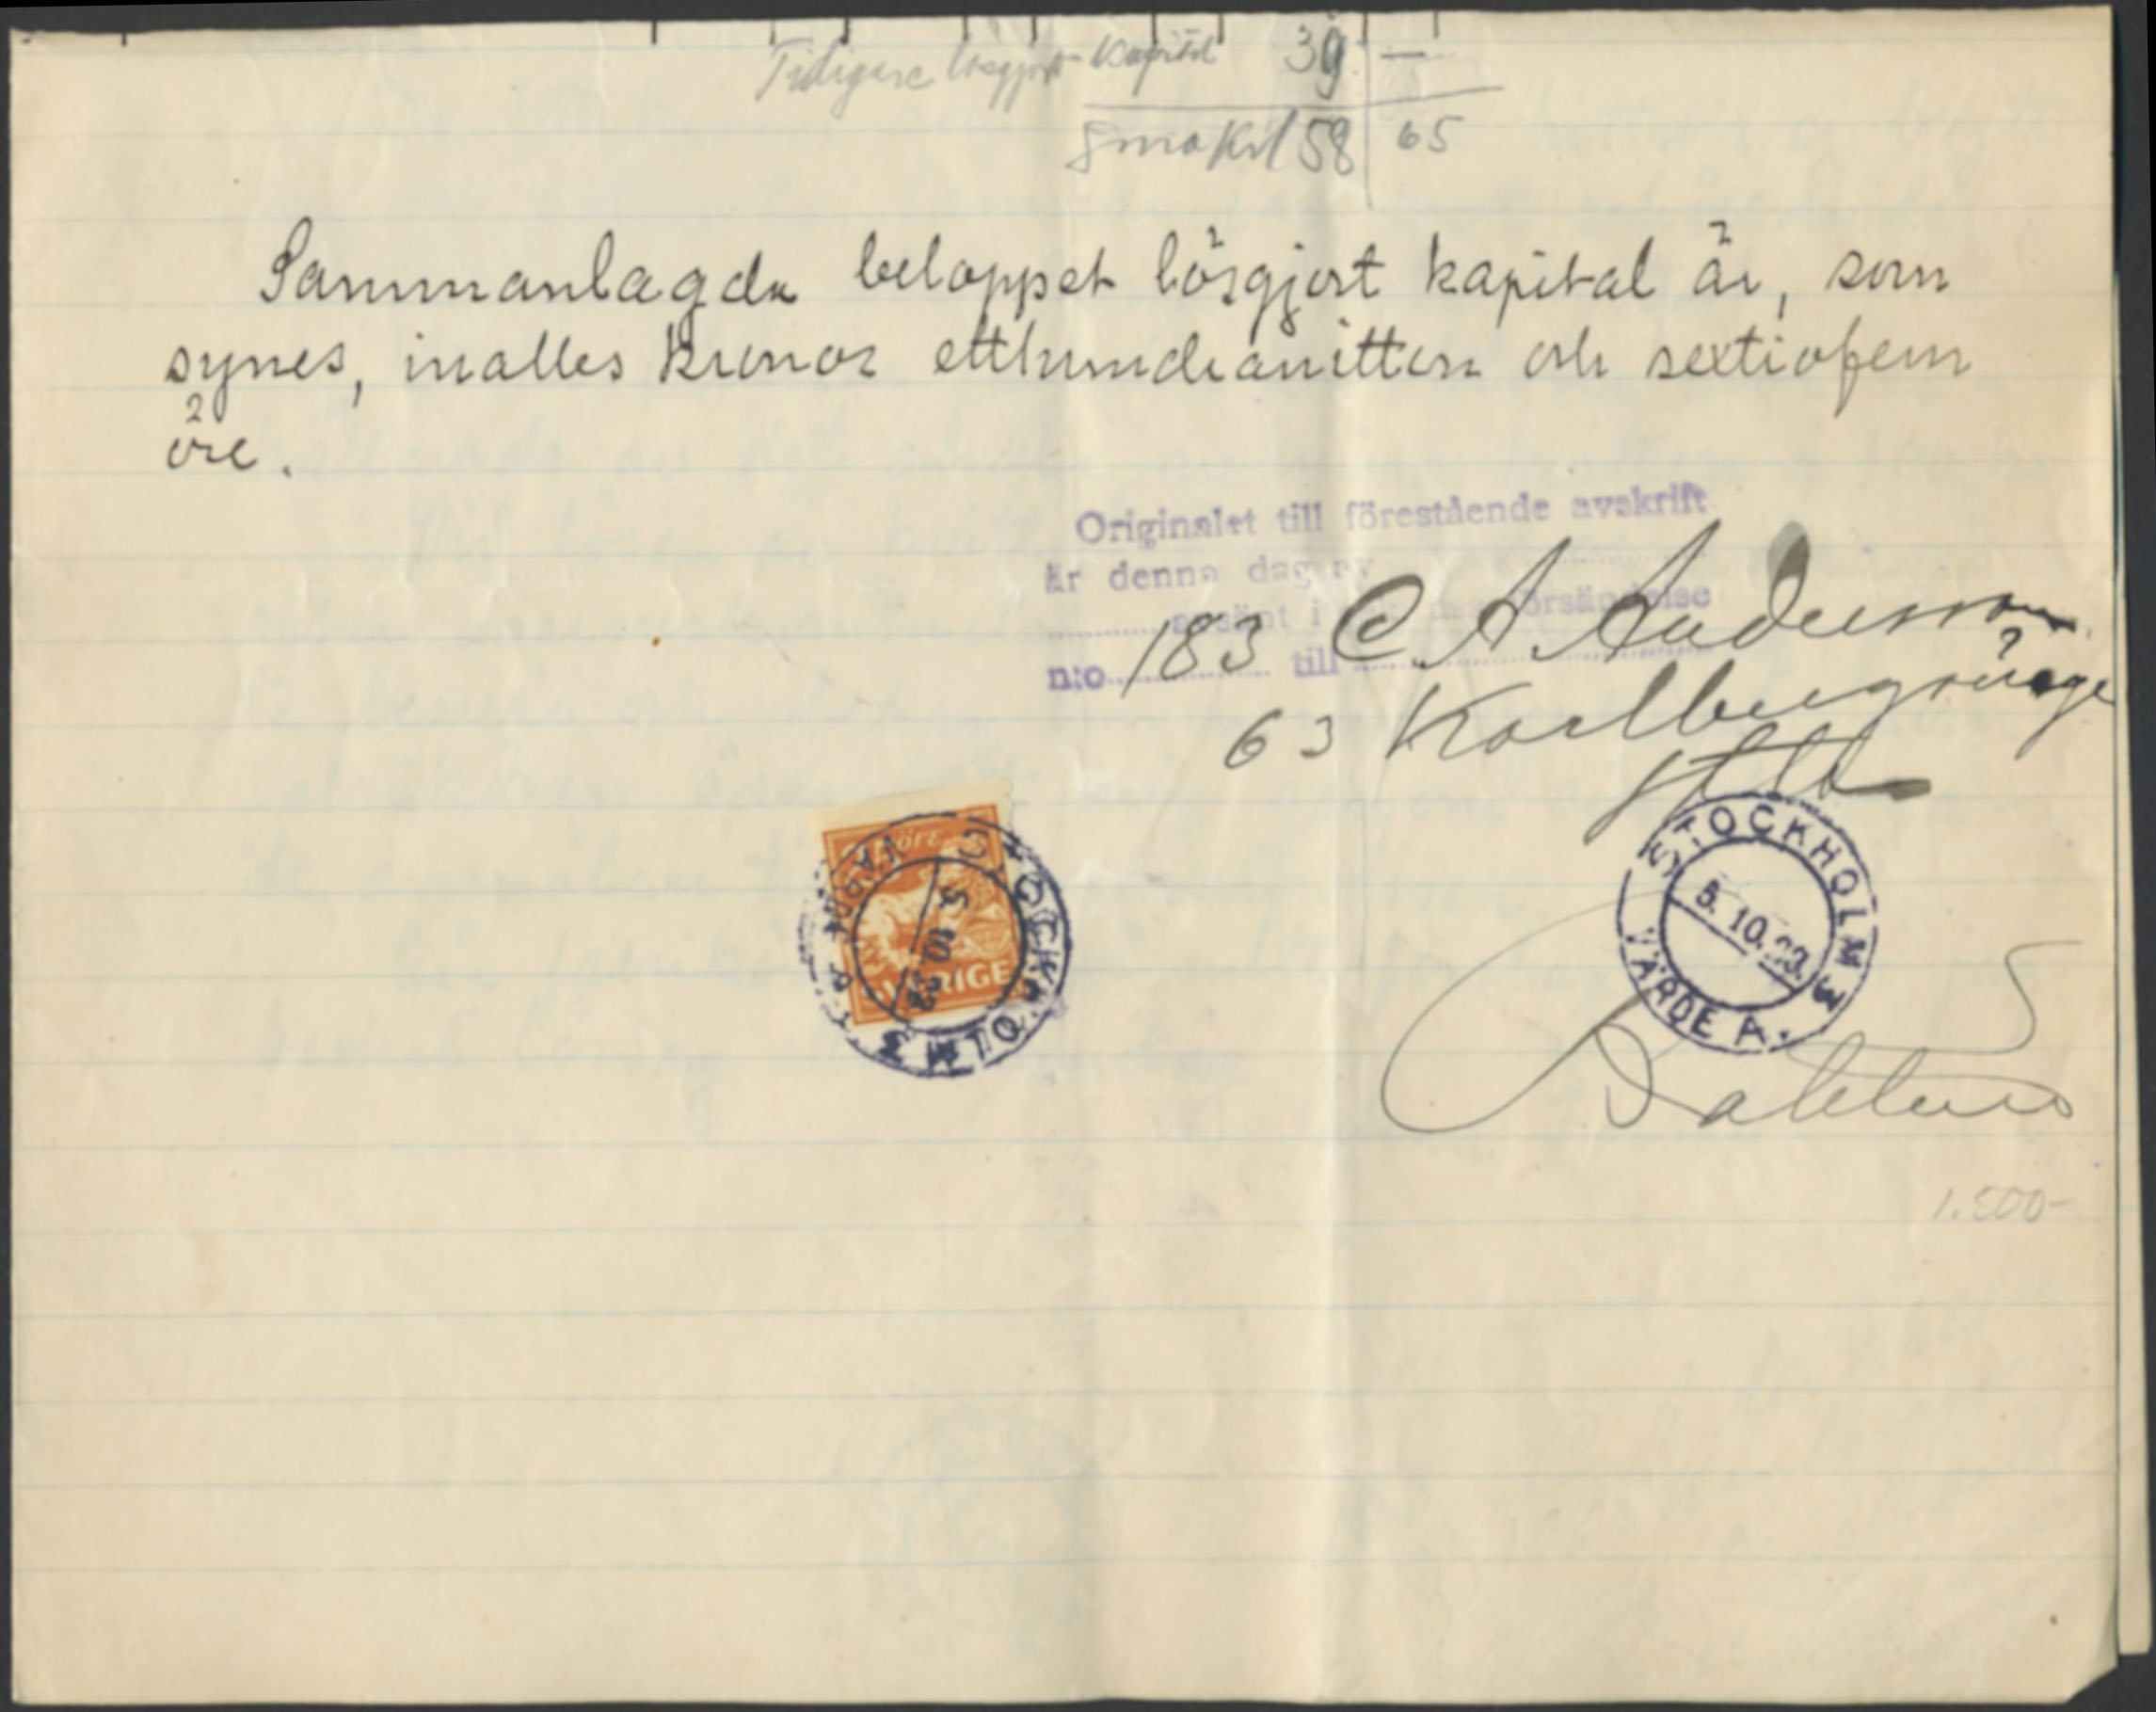 Tidigare lösgjort kapital 39 —
Summa Kr 158 65
Sammanlagda beloppet lösgjort kapital är, som
synes, inalles kronor etthundranitton och sextiofem
öre.
Originalet till förestående avskrift
är denna dag av
avsänt i försändelse
n:o 183 till C A Andersson
63 Karlbergsväge
Sthlm
öre
SVERIGE
STOCKHOLM 3
5. 10. 23
VÄRDE A.
STOCKHOLM 3
5. 10. 23.
VÄRDE A.
1.500-